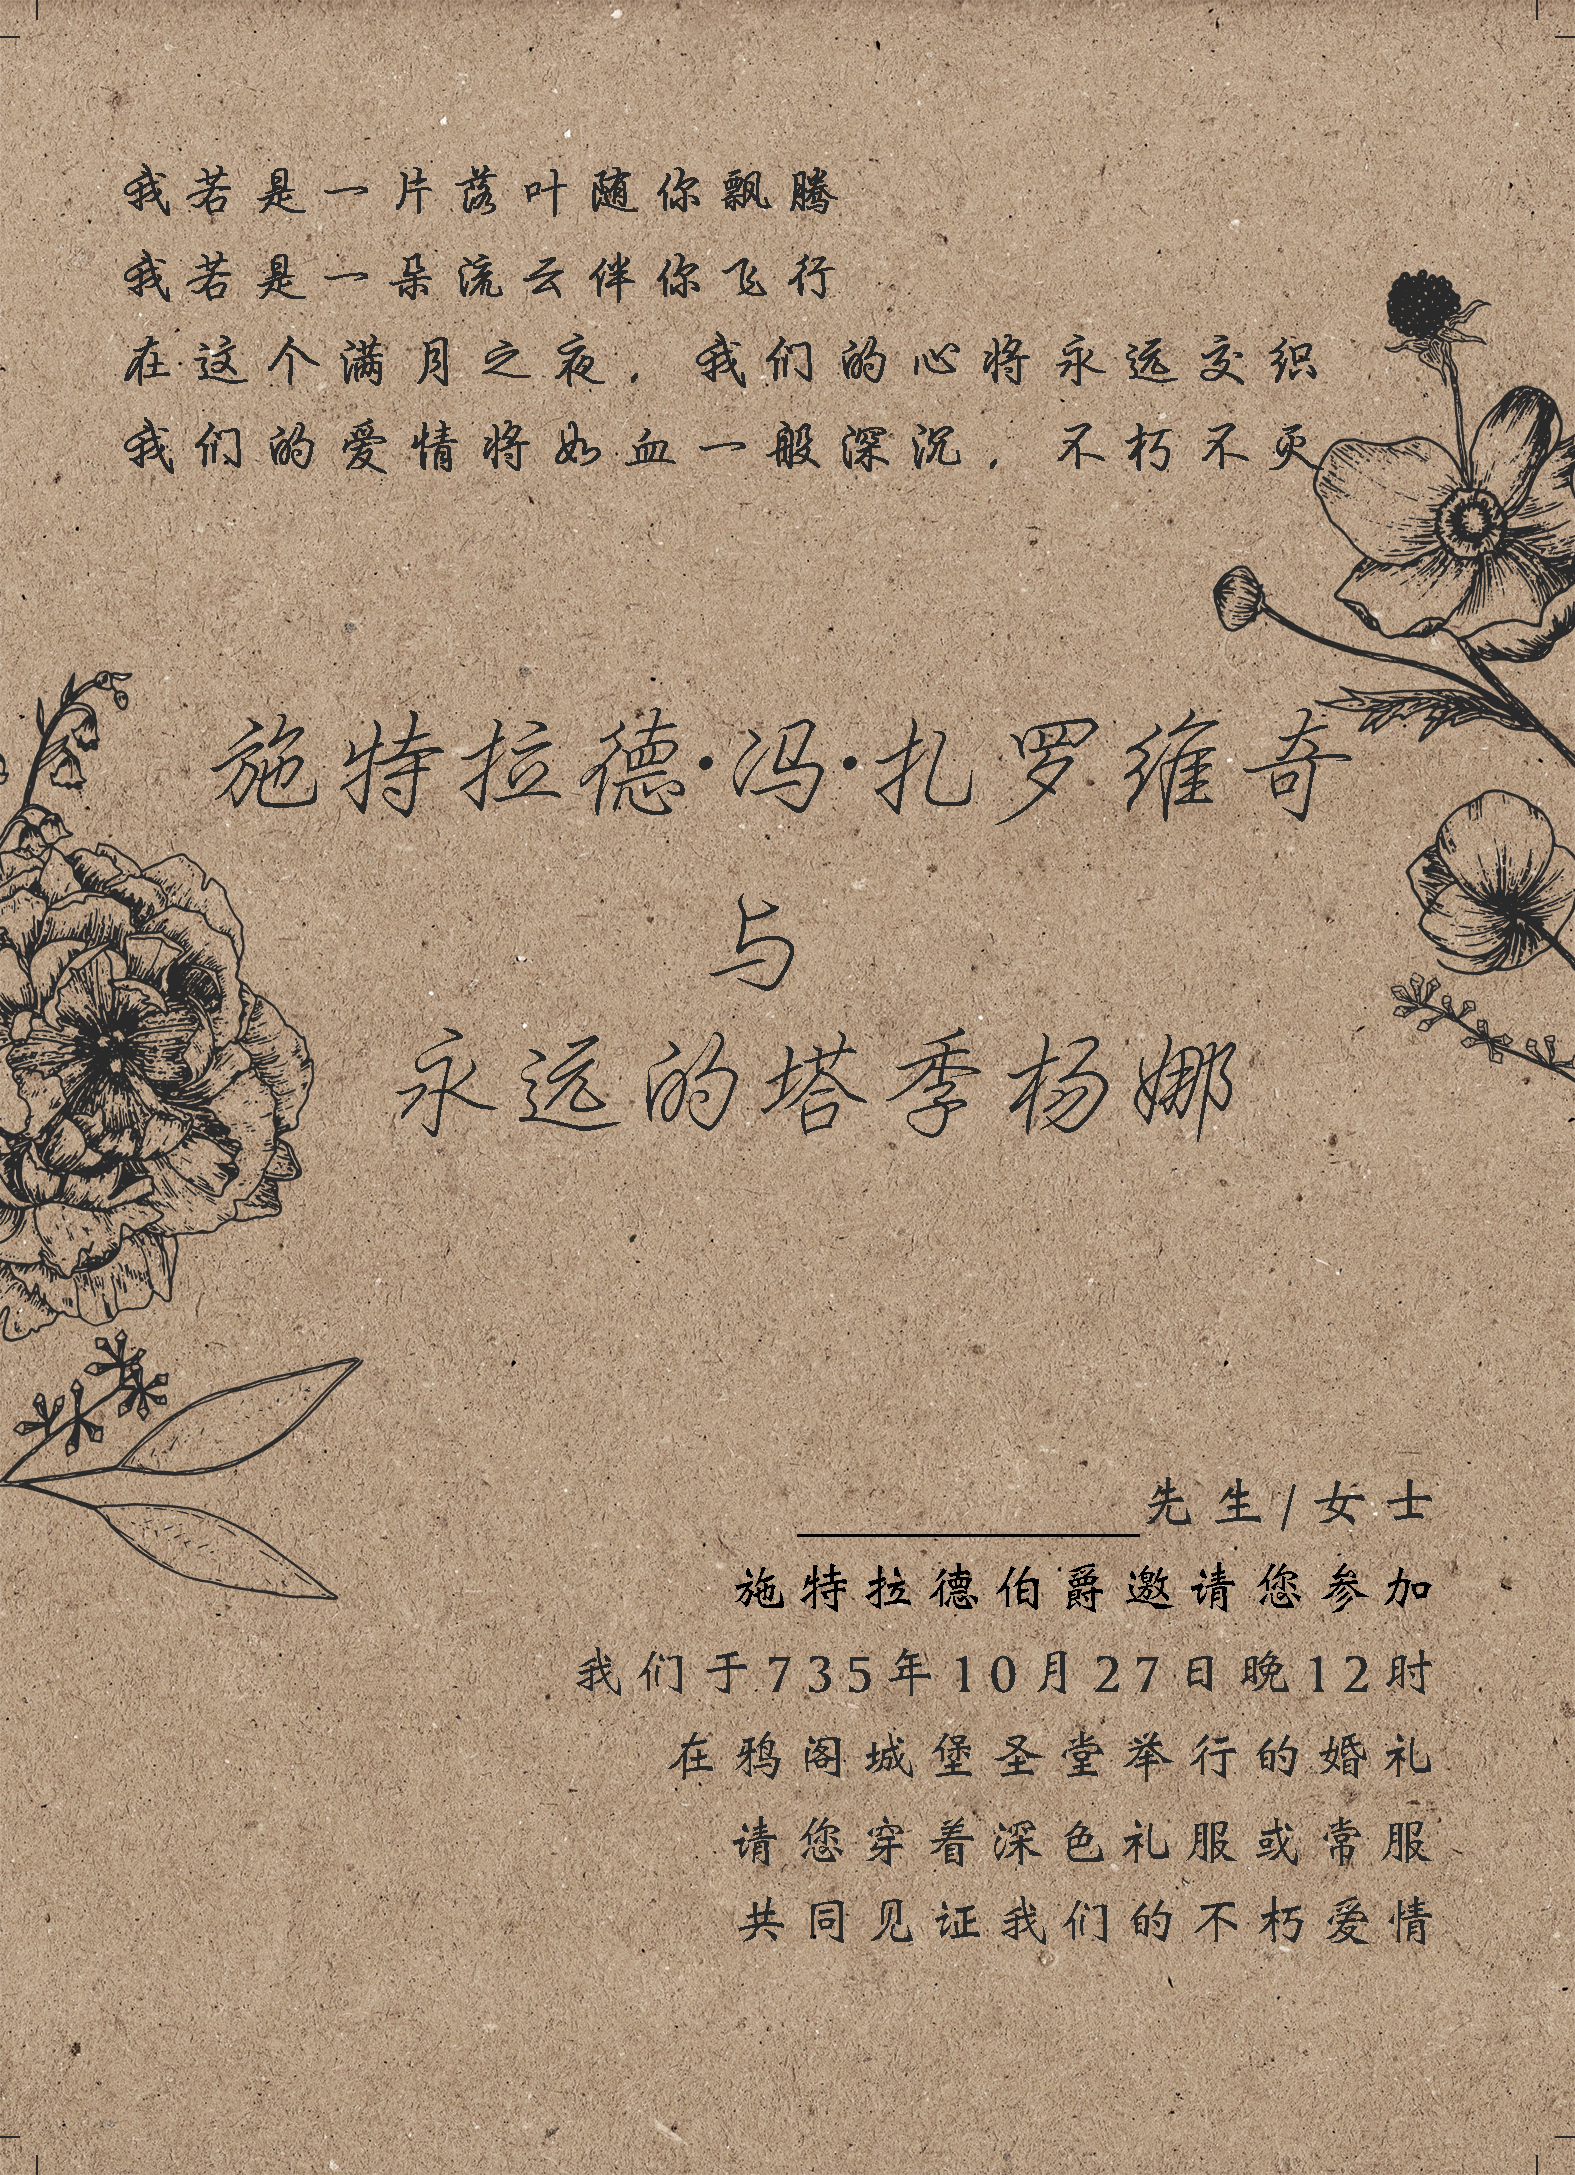 我若是一片落叶随你飘腾
我若是一朵流云伴你飞行
在这个满月之夜，我们的心将永远交织
我们的爱情将如血一般深沉，不朽不灭
施特拉德·冯·扎罗维奇
与
永远的塔季杨娜
先生/女士
施特拉德伯爵邀请您参加
我们于735年10月27日晚12时
在鸦阁城堡圣堂举行的婚礼
请您穿着深色礼服或常服
共同见证我们的不朽爱情